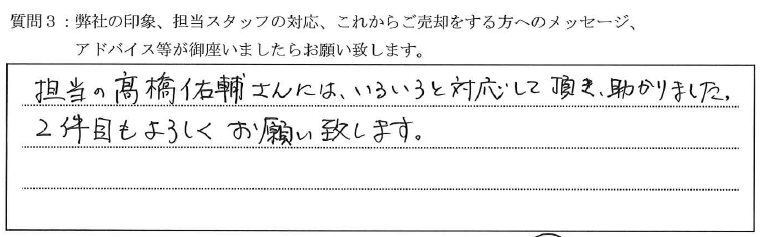 質問３：弊社の印象、担当スタッフの対応、これからご売却をする方へのメッセージ、
アドバイス等が御座いましたらお願い致します。
担当の髙橋佑輔さんには、いろいろと対応して頂き、助かりました。
２件目もよろしくお願い致します。